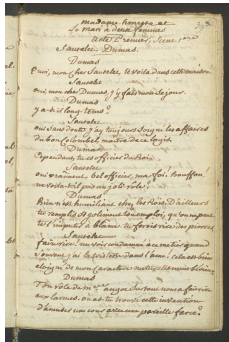 madame honesta et
le mari a deux femmes
acte Premier, Scene 1ere
Sansolei. Dumas.
Dumas
Quoi, mon cher Sansolei, te voila dans cette maison
Sansolei
oui mon cher Dumas, j'y fais mon sejour.
Dumas
y a-t-il long-tems?
Sansolei
oui sans doute j'ay toujours soigné les affaires
du bon Colombel maitre de ce logis.
Dumas
Cependant tu es officier du Roi
Sansolei
oui vraiment, bel officier, ma foi. bouffon,
ne voila-t-il pas un joli rôle!
Dumas
Bien n'est humiliant chez les Rois. D'ailleurs
tu remplis si galament ton emploi, qu'on ne peut
t'imputer à blame. tu ferois rire des pierres
Sansolei
faire rire! me voir condamné au metier quand
j'ai la tristesse dans l'ame! cela est bien
eloigné de mon Caractere
Dumas
Ton rôle de Mme angot surtout nous a fait rire
aux larmes. ou as-tu trouvé cette invention
d'amuser une cour avec une pareille farce?